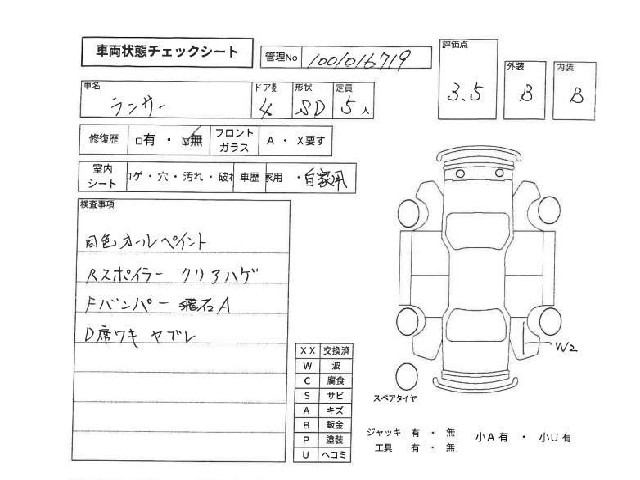 車両状態チェックシート
管理No 1001016719
評価点 3.5
外装 B
内装 B
車名 ランサー
ドア数 4
形状 SD
定員 5人
修復歴 □有 ・ ☑無
フロントガラス A ・ X要す
室内シート コゲ・穴・汚れ・破れ
車歴 家用 ・自家用
検査事項
同色オールペイント
Rスポイラー クリアハゲ
Fバンパー 飛石A
D席ワキ ヤブレ
XX 交換済
W 波
C 腐食
S サビ
A キズ
B 鈑金
P 塗装
U ヘコミ
W2
スペアタイヤ
ジャッキ 有 ・ 無
工具 有 ・ 無
小A有 ・ 小U有